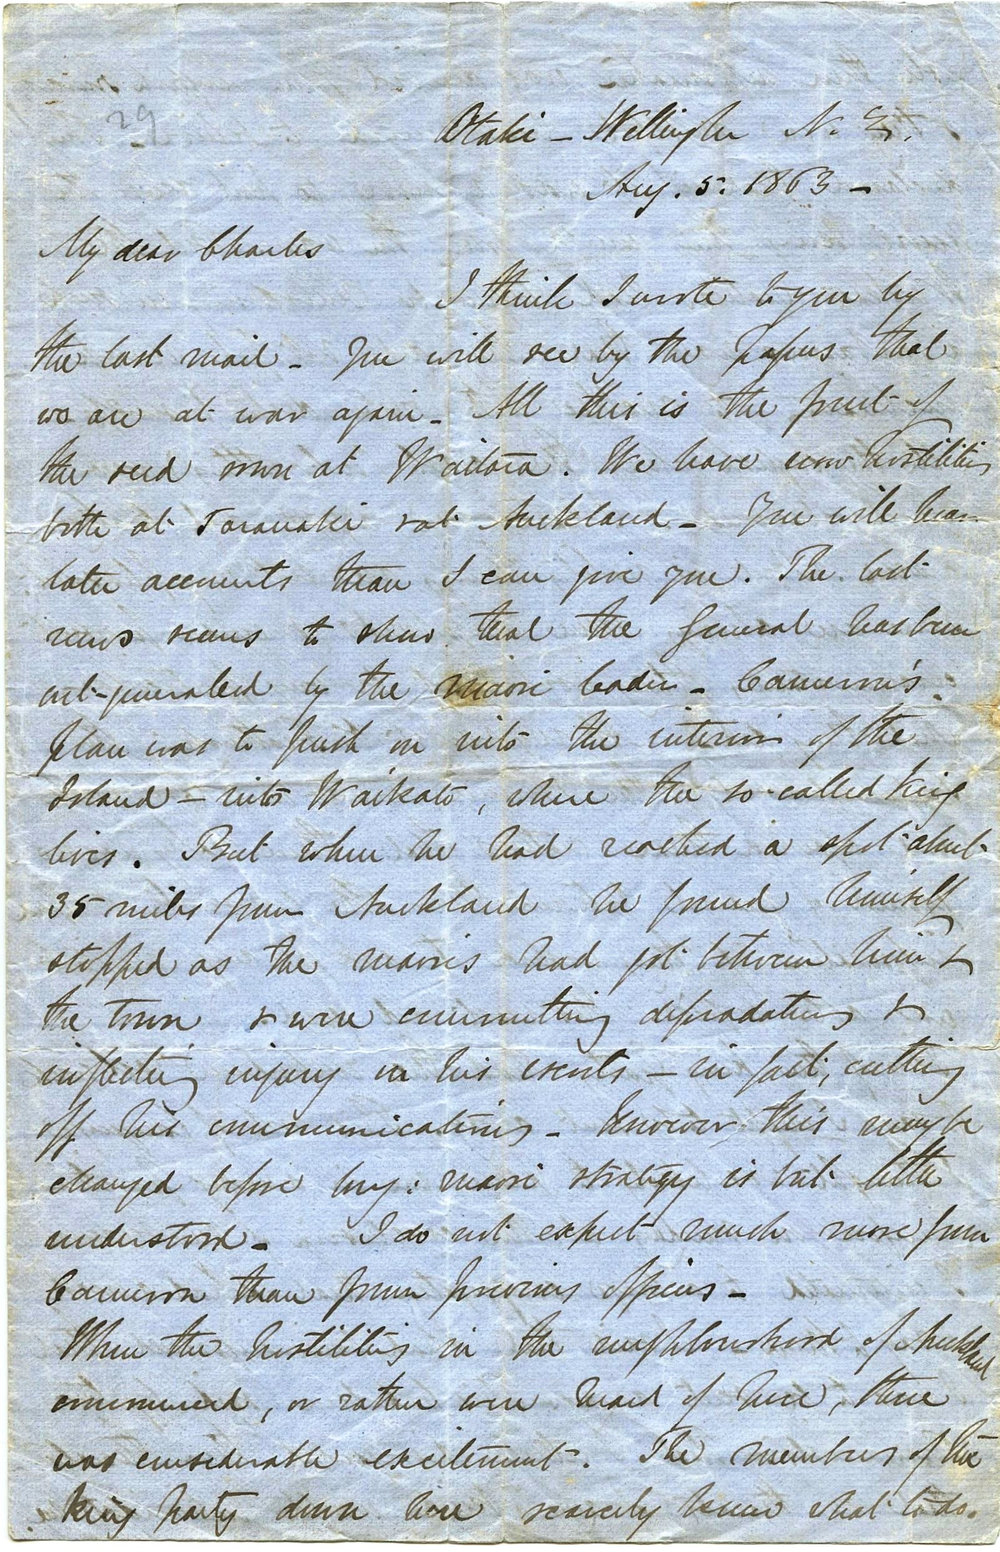 29
Otaki - Wellington N. Z.
Aug. 5. 1863 -
My dear Charles
I think I wrote to you by
the last mail - You will see by the papers that
we are at war again - All this is the fruit of
the seed sown at Waitara. We have now hostilities
both at Taranaki & at Auckland - You will hear
later accounts than I can give you. The last
news seems to show that the General has been
out-generaled by the maori leader - Cameron's
plan was to push on into the interior of the
Island - into Waikato, where the so-called king
lives. But when he had reached a spot about
35 miles from Auckland he found himself
stopped as the maoris had got between him &
the town & were committing depradations &
inflicting injury on his escorts - in fact, cutting
off his communications - However this may be
changed before long: maori strategy is but little
understood - I do not expect much more from
Cameron than from previous officers -
When the hostilities in the neighbourhood of Auckland
commenced, or rather were heard of here, there
was considerable excitement. The members of the
king party down here scarcely knew what to do.